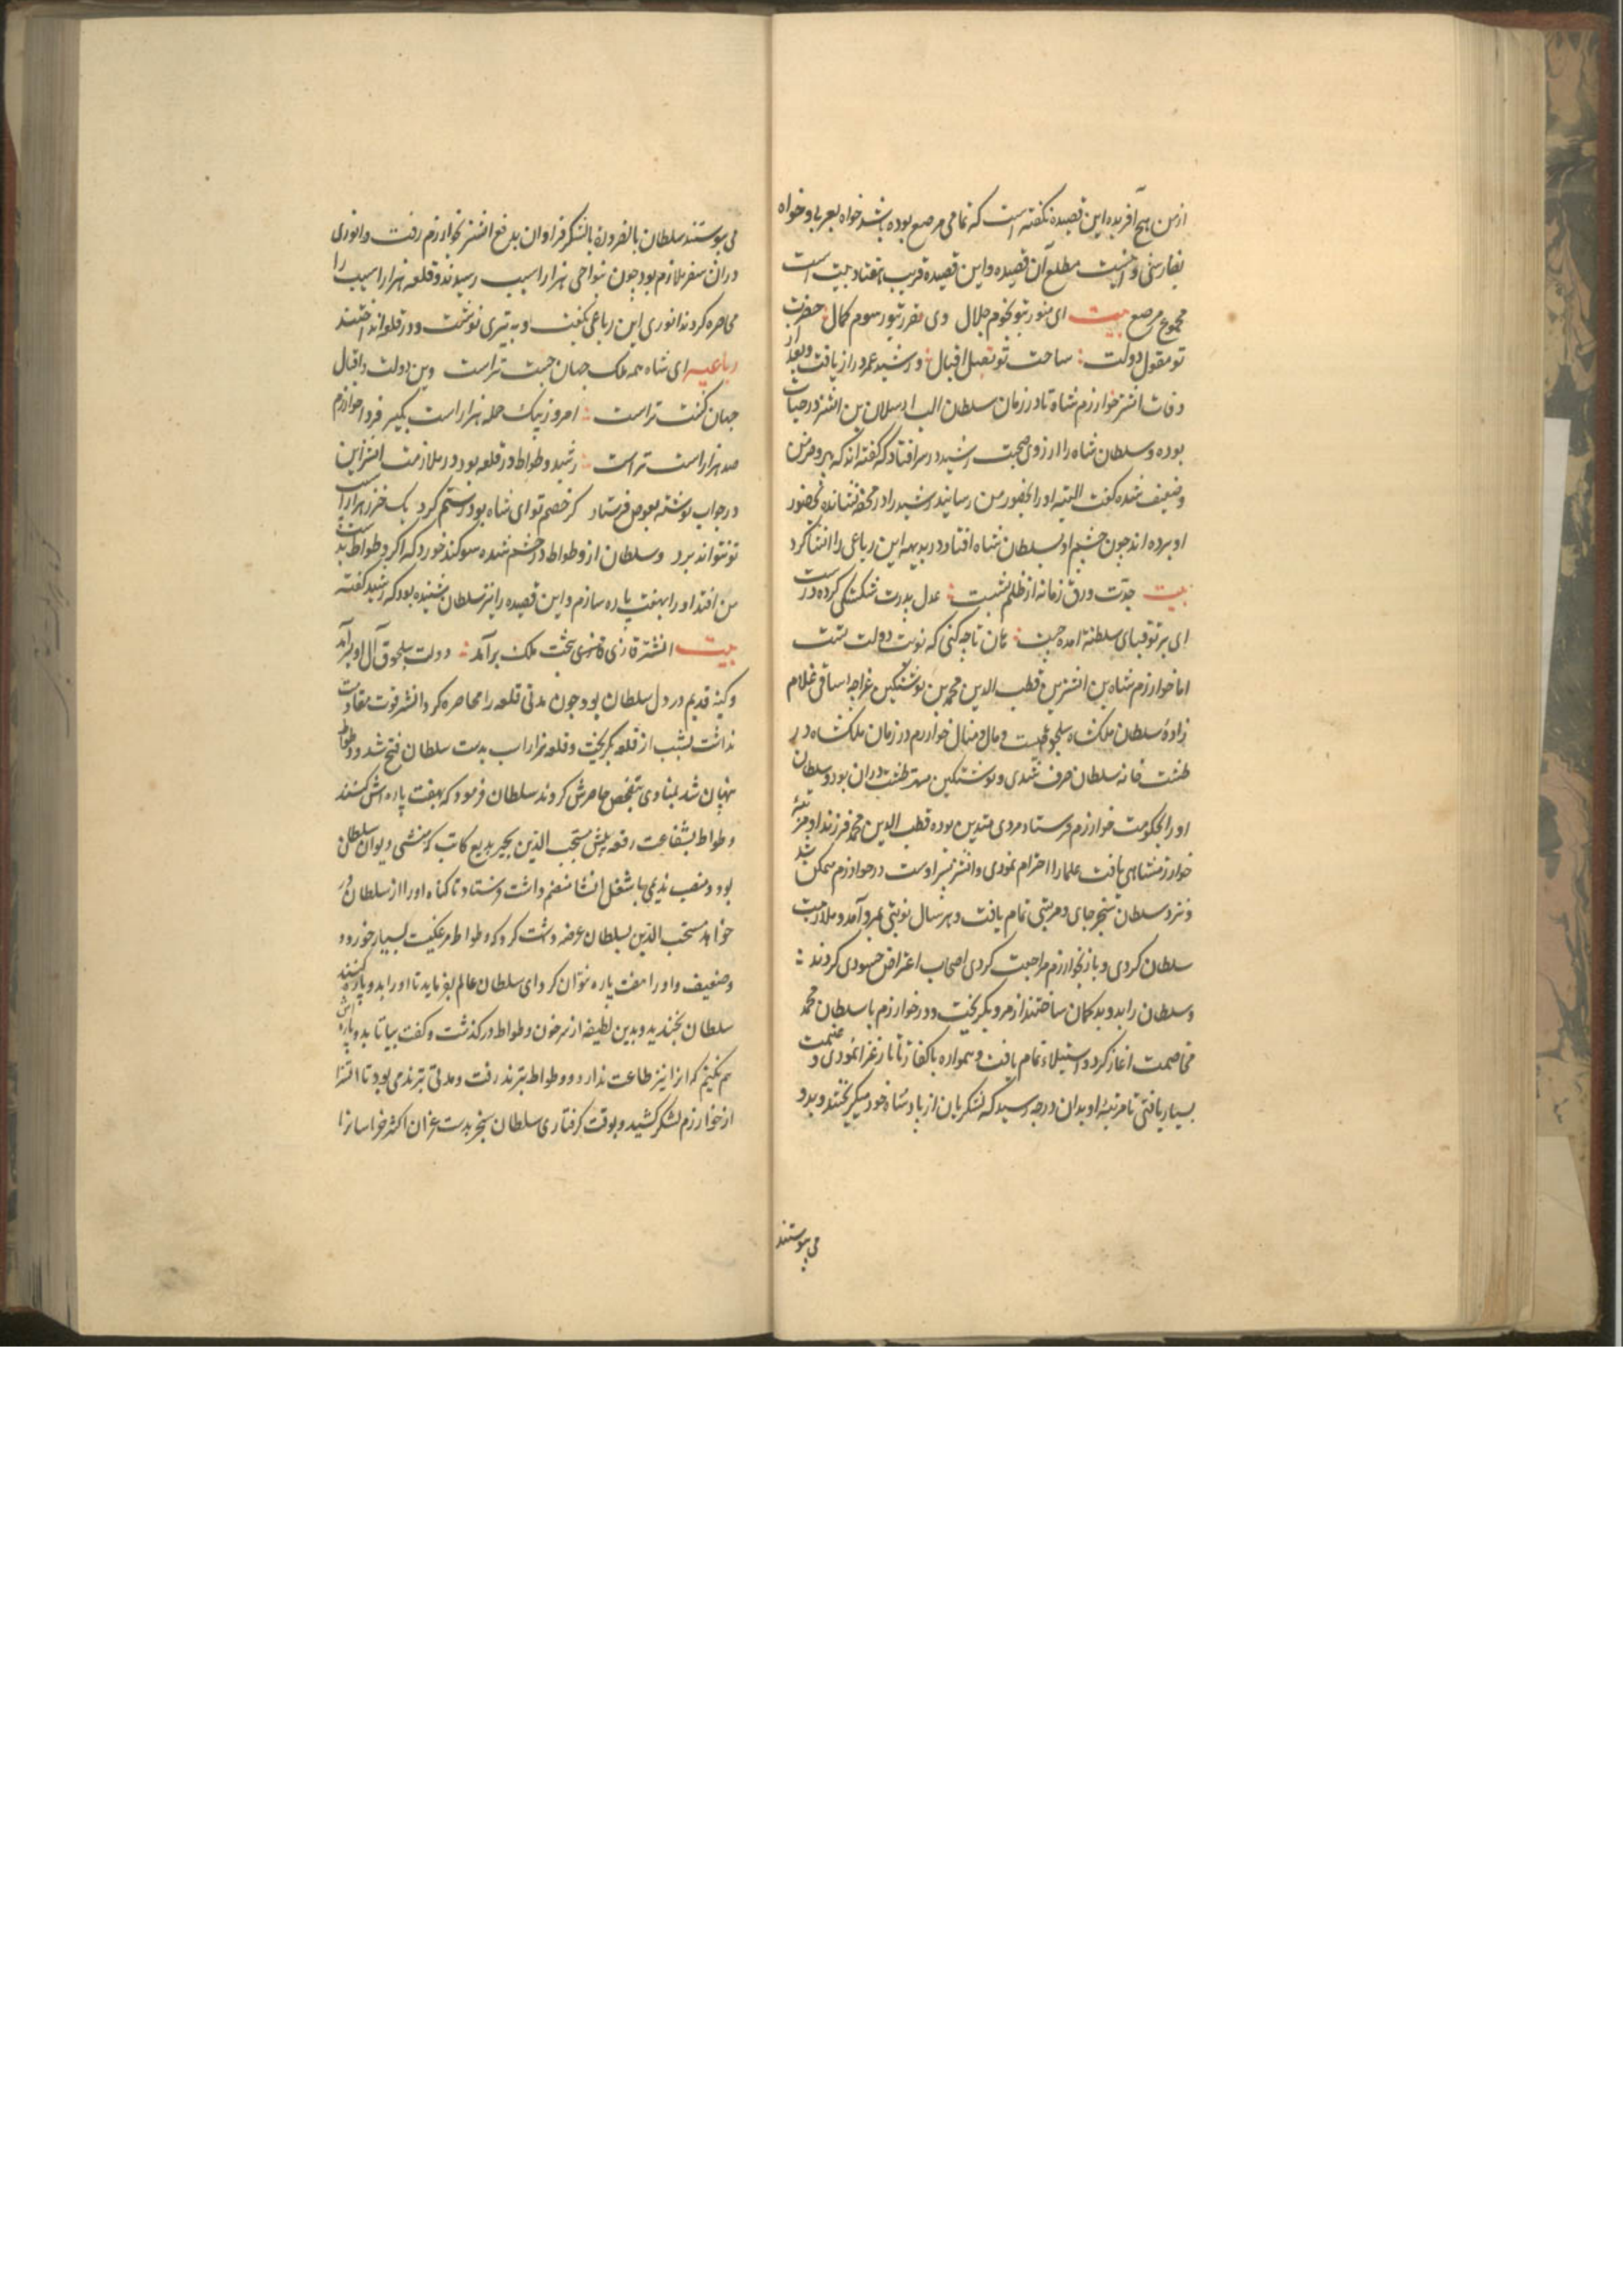 ازمن هیچ آفریده این قصیده نکفته است که تمامی مرصع بوده باشد خواه بعربی و خواه
بفارسی و اینست مطلع آن قصیده و این قصیده قریب هفتاد بیت است
مجموع مرصع بیت ای منور بتو نجوم جلال وی مقرر بتو رسوم کمال حضرت
تو معول دولت ساحت تو مقبل اقبال و رشید عمر دراز یافت و بعد از
وفات اتسز خوارزم شاه تا در زمان سلطان الب ارسلان بن اتسز در حیات
بوده و سلطان شاه را ارزوی صحبت رشید در سر افتاد که کفته اند که پیر و مزمن
و ضعیف شده کفت البته او را بحضور من رسانید رشید را در محفه نشانده بحضور
او برده اند چون چشم او بسلطان شاه افتاد در بدیهه این رباعی را انشا کرد
بیت جدت ورق زمانه از ظلم بشست عدل پدرت شکستکی کرده درست
ای بر تو قبای سلطنة امده چست هان تا چه کنی که نوبت دولت تست
اما خوارزم شاه بن اتسز بن قطب الدین محمد بن نوشتکین غراجه است اقی غلام
زادهٔ سلطان ملکشاه سلجوقیست و مال و منال خوارزم در زمان ملکشاه در
طشت خانه سلطان صرف شدی و نوشتکین مهتر طشت داران بود و سلطان
او را بحکومت خوارزم فرستاد مردی متدین بوده قطب الدین محمد فرزند او مرتبهٔ
خوارزمشاهی یافت علما را احترام نمودی و اتسز پسر اوست در خوارزم متمکن شد
و نزد سلطان سنجر جای و مرتبتی تمام یافت و هر سال نوبتی بمرو آمد و ملازمت
سلطان کردی و باز بخوارزم مراجعت کردی اصحاب اغراض حسودی کردند
و سلطان را بدو بدکمان ساختند از مرو بکریخت و در خوارزم با سلطان محمد
مخاصمت اغاز کرد و استیلاء تمام یافت و همواره با کفار تاتار غزا نمودی و غنیمت
بسیار یافتی تا مرتبهٔ او بدان درجه رسید که لشکریان از پادشاه خود میکریختند و بدو
می پیوستند
می پیوستند سلطان بالضرورة با لشکر فراوان بدفع اتسز بخوارزم رفت و انوری
دران سفر ملازم بود چون بنواحی هزار اسب رسیدند و قلعه هزار اسب را
محاصره کردند انوری این رباعی بکفت و به تیری نوشت و در قلعه انداختند
رباعیه ای شاه همه ملک جهان حسب تراست وین دولت و اقبال
جهان کسب تراست امروز بیک حمله هزار اسب بکیر فردا خوارزم
صد هزار اسب تراست رشید وطواط در قلعه بود در ملازمت اتسز این
در جواب نوشته بعوض فرستاد کر خصم تو ای شاه بود رستم کرد یک خر ز هزار اسب
تو نتواند برد و سلطان از وطواط در خشم شده سوکند خورد که اکر وطواط بدست
من افتد او را بهفت پاره سازم و این قصیده را نیز سلطان شنیده بود که رشید کفته
بیت اتسز غازی بتخت ملک برآمد دولت سلجوق و آل او بسرآمد
و کینهٔ قدیم در دل سلطان بود چون مدتی قلعه را محاصره کرد اتسز قوت مقاومت
نداشت بشب از قلعه بکریخت و قلعه هزار اسب بدست سلطان فتح شد و وطواط
پنهان شد بمنادی و تفحص حاضرش کردند سلطان فرمود که بهفت پاره اش کنند
وطواط بشفاعت رقعه پیش منتجب الدین بدیع کاتب که منشی دیوان سلطان
بود و منصب ندیمی با شغل انشا منضم داشت فرستاد تا کناه او را از سلطان در
خواهد منتجب الدین بسلطان عرضه داشت کرد که وطواط مرغکیست بسیار خورد و
و ضعیف و او را هفت پاره نتوان کرد ای سلطان عالم بفرماید تا او را بدو پاره کنند
سلطان بخندید و بدین لطیفه از سر خون وطواط درکذشت و کفت بیا تا بدو پاره اش
هم نکنیم که انرا نیز طاعت ندارد و وطواط بترمد رفت و مدتی بترمد می بود تا اتسز
از خوارزم لشکر کشید و بوقت کرفتاری سلطان سنجر بدست غزان اکثر خراسانرا